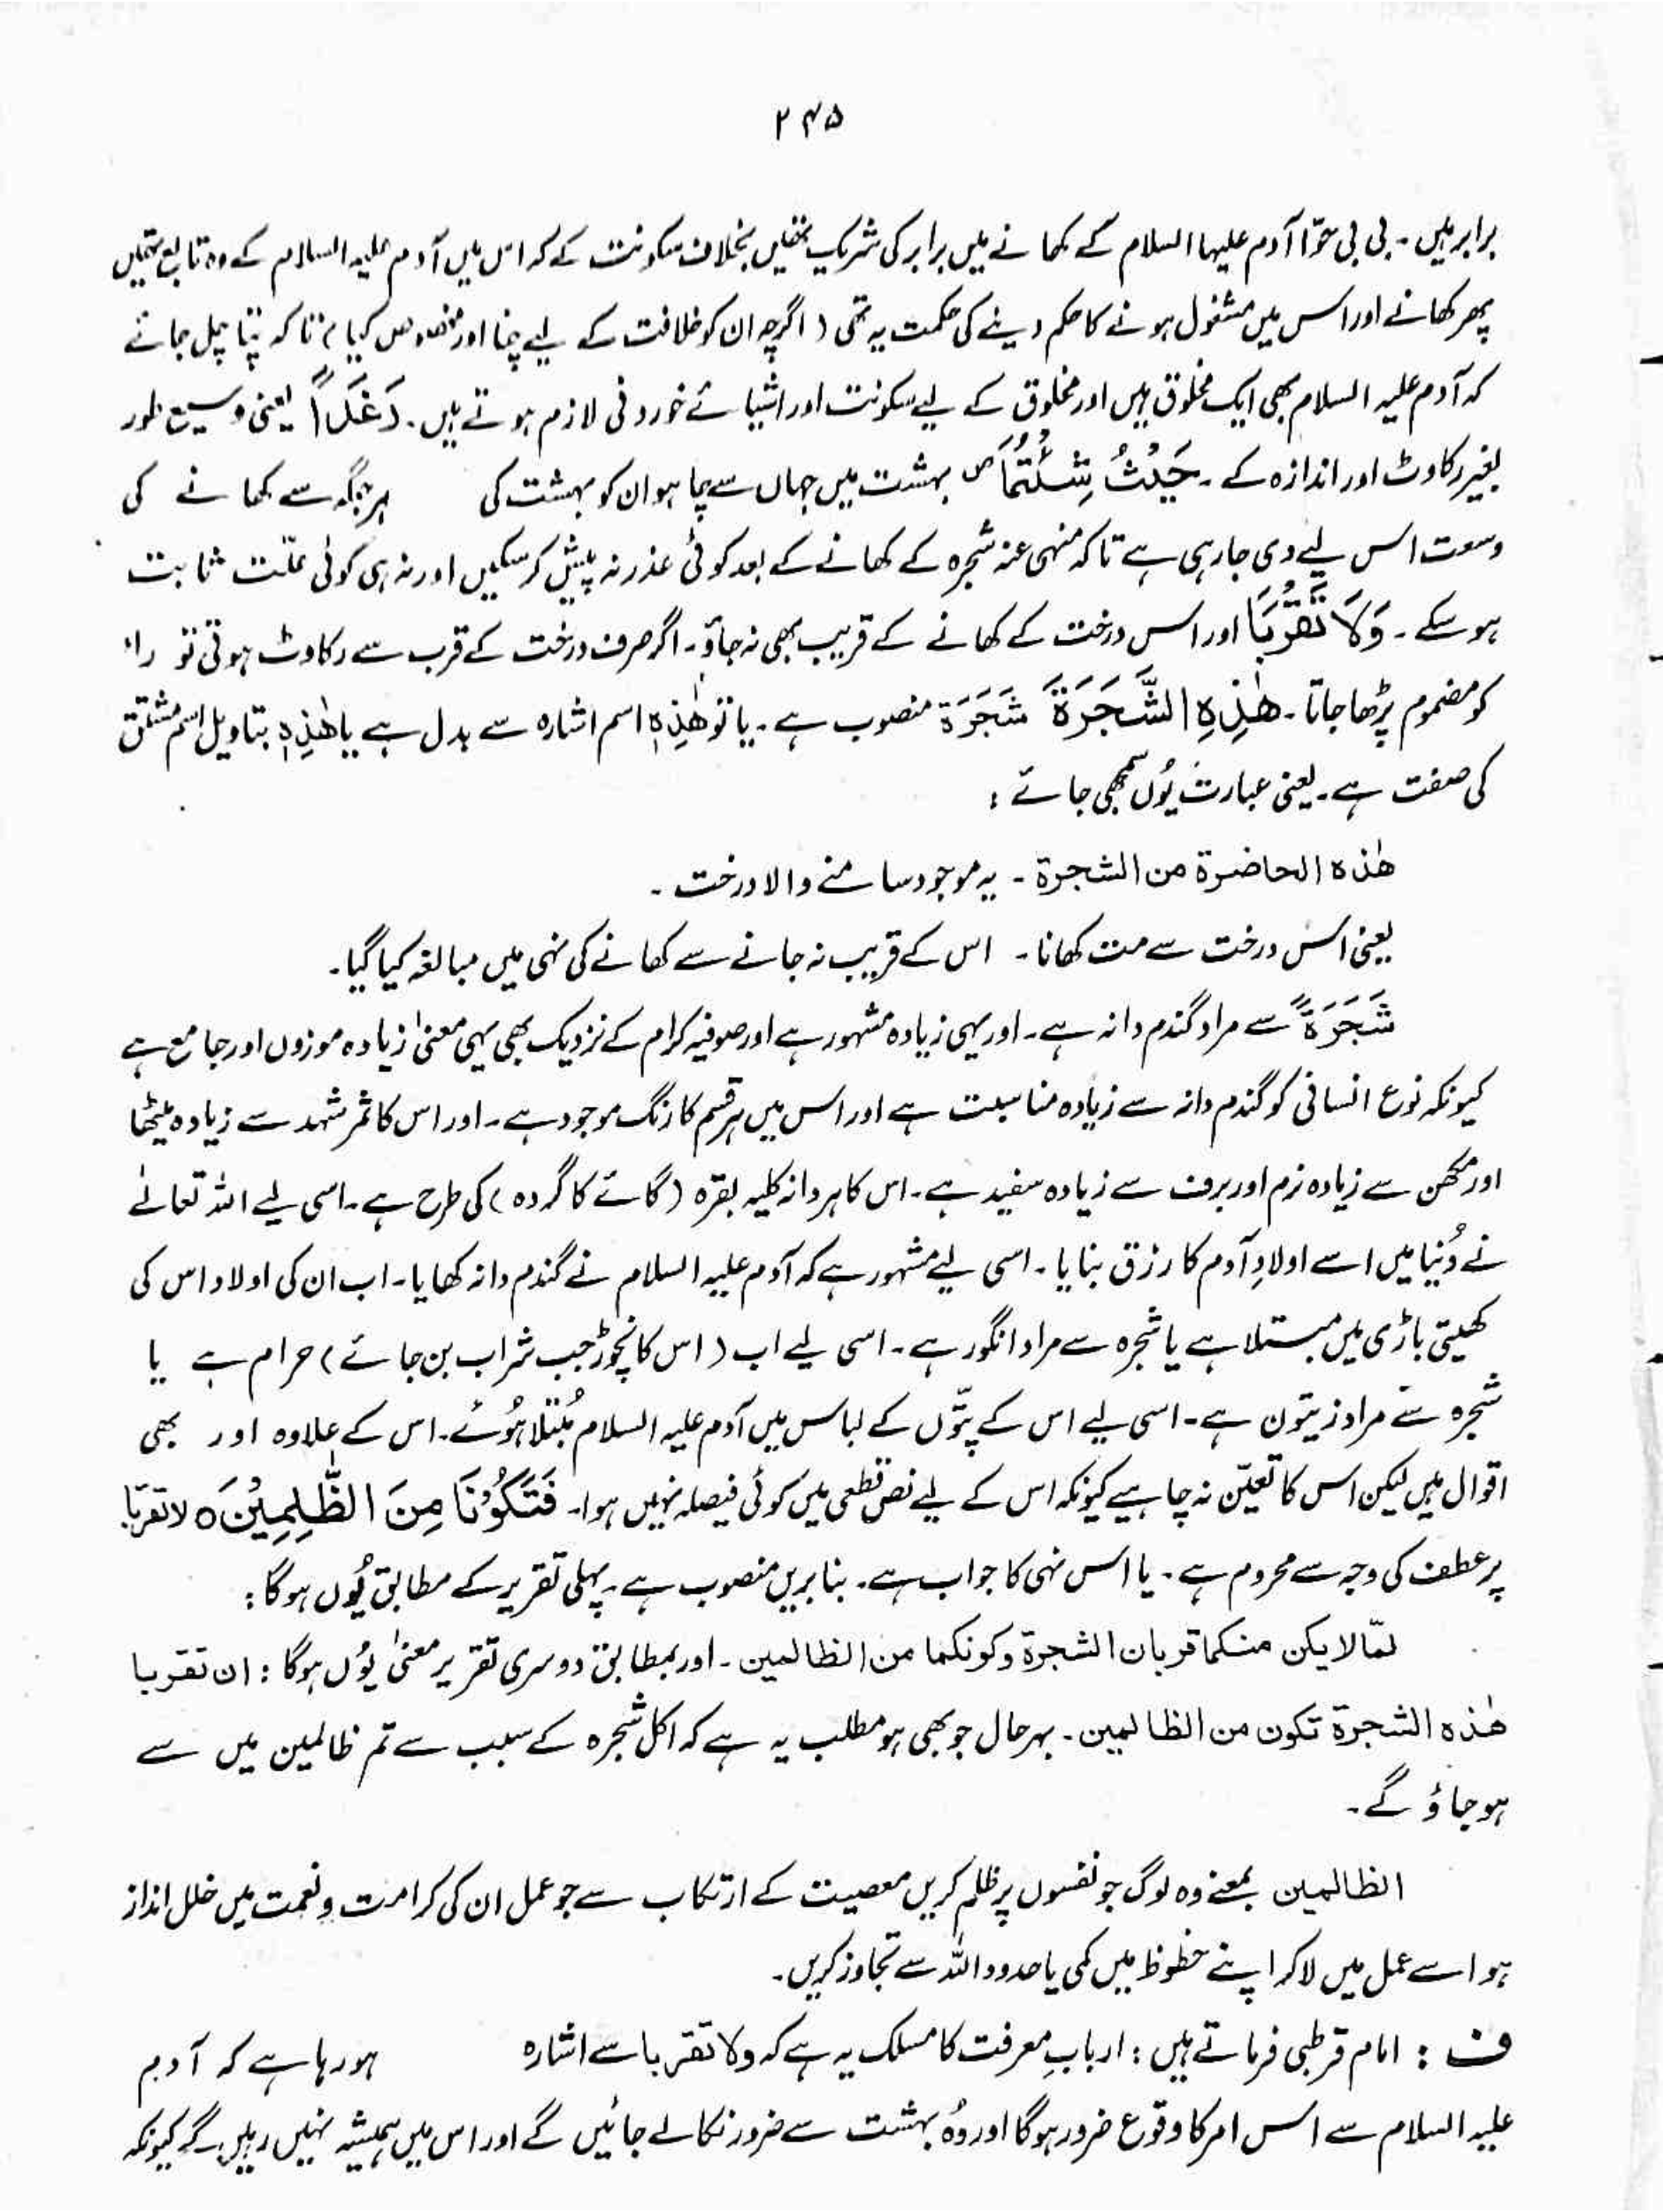 ۲۴۵
برابر ہیں۔ بی بی حوّا آدم علیہا السلام کے کھانے میں برابر کی شریک تھیں بخلاف سکونت کے کہ اس میں آدم علیہ السلام کے وہ تابع تھیں
پھر کھانے اور اس میں مشغول ہونے کا حکم دینے کی حکمت یہ تھی (اگرچہ ان کو خلافت کے لیے چنا اور مخصوص کیا) تاکہ پتا چل جائے
کہ آدم علیہ السلام بھی ایک مخلوق ہیں اور مخلوق کے لیے سکونت اور اشیائے خوردنی لازم ہوتے ہیں۔ رَغَدًا یعنی وسیع طور
بغیر رکاوٹ اور اندازہ کے۔ حَیْثُ شِئْتُمَا ص بہشت میں جہاں سے چاہو ان کو بہشت کی ہر جگہ سے کھانے کی
وسعت اس لیے دی جا رہی ہے تاکہ منہی عنہ شجرہ کے کھانے کے بعد کوئی عذر نہ پیش کر سکیں اور نہ ہی کوئی علّت ثابت
ہو سکے۔ وَلَا تَقْرَبَا اور اس درخت کے کھانے کے قریب بھی نہ جاؤ۔ اگر صرف درخت کے قرب سے رکاوٹ ہوتی تو راء
کو مضموم پڑھا جاتا۔ ھٰذِہِ الشَّجَرَۃَ شَجَرَۃ منصوب ہے۔ یا تو ھٰذِہٖ اسم اشارہ سے بدل ہے یا ھٰذِہٖ بتاویل اسم مشتق
کی صفت ہے۔ یعنی عبارت یُوں سمجھی جائے :
ھٰذہ الحاضرۃ من الشجرۃ۔ یہ موجود سامنے والا درخت۔
یعنی اس درخت سے مت کھانا۔ اس کے قریب نہ جانے سے کھانے کی نہی میں مبالغہ کیا گیا۔
شَجَرَۃً سے مراد گندم دانہ ہے۔ اور یہی زیادہ مشہور ہے اور صوفیہ کرام کے نزدیک بھی یہی معنیٰ زیادہ موزوں اور جامع ہے
کیونکہ نوع انسانی کو گندم دانہ سے زیادہ مناسبت ہے اور اس میں ہر قسم کا رنگ موجود ہے۔ اور اس کا ثمر شہد سے زیادہ میٹھا
اور مکھن سے زیادہ نرم اور برف سے زیادہ سفید ہے۔ اس کا ہر دانہ کلیہ بقرہ (گائے کا گردہ) کی طرح ہے۔ اسی لیے اللہ تعالےٰ
نے دُنیا میں اسے اولادِ آدم کا رزق بنایا۔ اسی لیے مشہور ہے کہ آدم علیہ السلام نے گندم دانہ کھایا۔ اب ان کی اولاد اس کی
کھیتی باڑی میں مبتلا ہے یا شجرہ سے مراد انگور ہے۔ اسی لیے اب (اس کا نچوڑ جب شراب بن جائے) حرام ہے یا
شجرہ سے مراد زیتون ہے۔ اسی لیے اس کے پتّوں کے لباس میں آدم علیہ السلام مُبتلا ہُوئے۔ اس کے علاوہ اور بھی
اقوال ہیں لیکن اس کا تعیّن نہ چاہیے کیونکہ اس کے لیے نص قطعی میں کوئی فیصلہ نہیں ہوا۔ فَتَکُوْنَا مِنَ الظّٰلِمِیْنَ ہ لا تقربَا
پر عطف کی وجہ سے محروم ہے۔ یا اس نہی کا جواب ہے۔ بنا بریں منصوب ہے۔ پہلی تقریر کے مطابق یُوں ہوگا :
لمّا لا یکن منکما قربان الشجرۃ وکونکما من الظالمین۔ اور بمطابق دوسری تقریر معنیٰ یُوں ہوگا : ان تقربا
ھٰذہ الشجرۃ تکون من الظالمین۔ بہرحال جو بھی ہو مطلب یہ ہے کہ اکل شجرہ کے سبب سے تم ظالمین میں سے
ہو جاؤ گے۔
الظالمین بمعنے وہ لوگ جو نفسوں پر ظلم کریں معصیت کے ارتکاب سے جو عمل ان کی کرامت و نعمت میں خلل انداز
ہو اسے عمل میں لا کر اپنے حظوظ میں کمی یا حدود اللہ سے تجاوز کریں۔
ف : امام قرطبی فرماتے ہیں : اربابِ معرفت کا مسلک یہ ہے کہ ولا تقربا سے اشارہ ہو رہا ہے کہ آدم
علیہ السلام سے اس امر کا وقوع ضرور ہوگا اور وُہ بہشت سے ضرور نکالے جائیں گے اور اس میں ہمیشہ نہیں رہیں گے کیونکہ